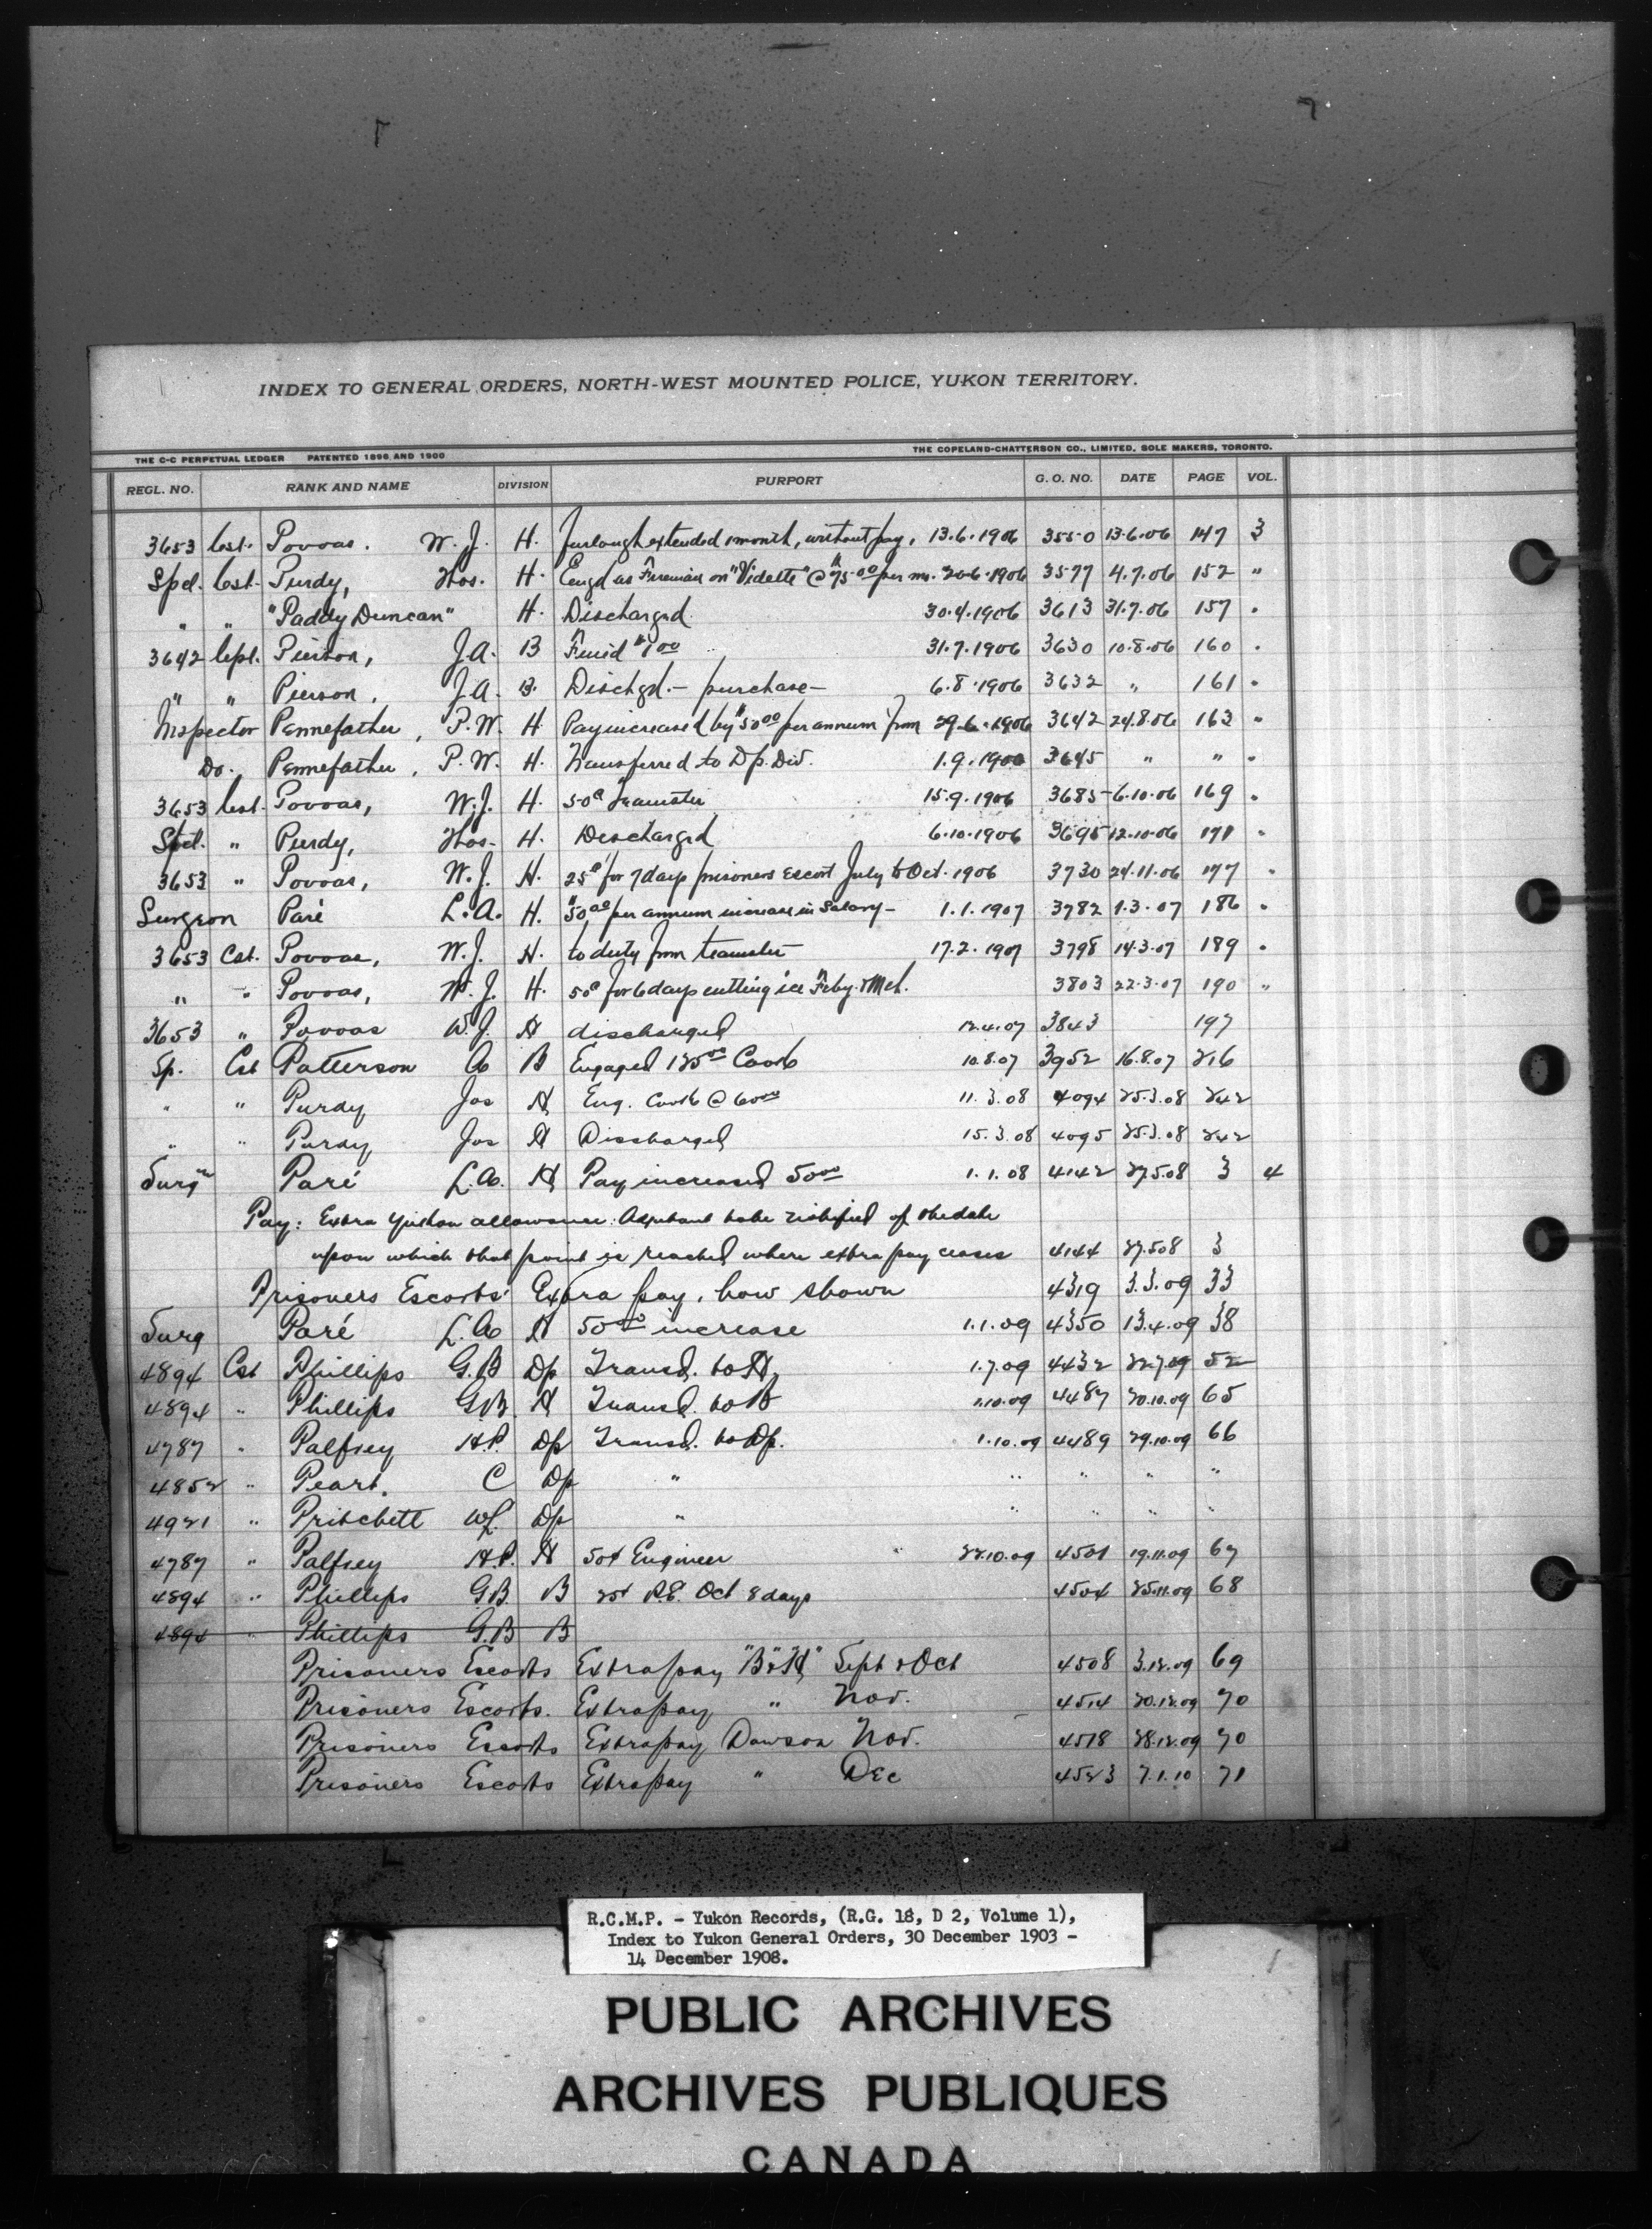 INDEX TO GENERAL ORDERS, NORTH-WEST MOUNTED POLICE, YUKON TERRITORY.
THE C-C PERPETUAL LEDGER PATENTED 1896 AND 1900 THE COPELAND-CHATTERSON CO., LIMITED, SOLE MAKERS, TORONTO.
REGL. NO. RANK AND NAME DIVISION PURPORT G. O. NO. DATE PAGE VOL.
3653 Cst. Povoas. W. J. H. Furlough extended 1 month, without pay, 13.6.1906 3550 13.6.06 147 3
Spcl. Cst. Purdy, Thos. H. Engd as Fireman on "Vidette" @ $75.00 per mo. 20.6.1906 3577 4.7.06 152 "
" " "Paddy Duncan" H. Discharged 30.4.1906 3613 31.7.06 157 "
3642 Cpl. Pierson, J.A. B Fined $1 00 31.7.1906 3630 10.8.06 160 "
" " Pierson, J.A. B. Dischgd.- purchase- 6.8.1906 3632 " 161 "
Inspector Pennefather, P.W. H Pay increased by $50 00 per annum from 29.6.1906 3642 24.8.06 163 "
Do. Pennefather, P.W. H. Transferred to Dp. Div. 1.9.1906 3645 " " "
3653 Cst. Povoas, W.J. H. 50¢ Teamster 15.9.1906 3685 6.10.06 169 "
Spcl. " Purdy, Thos. H. Discharged 6.10.1906 3695 12.10.06 171 "
3653 " Povoas, W.J. H. 25¢ for 7 days prisoners escort July to Oct. 1906 3730 24.11.06 177 "
Surgeon Paré L.A. H. $50.00 per annum increase in Salary- 1.1.1907 3782 1.3.07 186 "
3653 Cst. Povoas, W.J. H. to duty from teamster 17.2.1907 3798 14.3.07 189 "
" " Povoas, W.J. H. 50¢ for 6 days cutting ice Feby. & Mch. 3803 22.3.07 190 "
3653 " Povoas W.J. H discharged 12.4.07 3843 197
Sp. Cst Patterson A B Engaged 125 00 Cook 10.8.07 3952 16.8.07 216
" " Purdy Jas H Eng. Cook @ 60 00 11.3.08 4094 25.3.08 242
" " Purdy Jas H Discharged 15.3.08 4095 25.3.08 242
Surgn Paré L.A. H Pay increased 50 00 1.1.08 4142 27.5.08 3 4
Pay: Extra Yukon allowance: Adjutant to be notified of the date
upon which that point is reached where extra pay ceases 4144 27.5.08 3
Prisoners Escorts' Extra pay, how shown 4319 3.3.09 33
Surg Paré L.A H 50 00 increase 1.1.09 4350 13.4.09 38
4894 Cst Phillips G.B Dp Transd. to H. 1.7.09 4432 22.7.09 52
4894 " Phillips G.B. H Transd. to B 1.10.09 4487 20.10.09 65
4787 " Palfrey H.P. Dp Transd. to Dp. 1.10.09 4489 29.10.09 66
4852 " Peart. C Dp " " " " "
4921 " Pritchett W.L. Dp " " " " "
4787 " Palfrey H.P. H 50¢ Engineer 22.10.09 4501 19.11.09 67
4894 " Phillips G.B. B 25¢ P.E. Oct 8 days 4504 25.11.09 68
4894 " Phillips G.B B
Prisoners Escorts Extra pay "B" & "H" Sept & Oct 4508 3.12.09 69
Prisoners Escorts. Extra pay " Nov. 4514 20.12.09 70
Prisoners Escorts Extra pay Dawson Nov. 4518 28.12.09 70
Prisoners Escorts Extra pay " Dec 4523 7.1.10 71
R.C.M.P. - Yukon Records, (R.G. 18, D 2, Volume 1),
Index to Yukon General Orders, 30 December 1903 -
14 December 1908.
PUBLIC ARCHIVES
ARCHIVES PUBLIQUES
CANADA